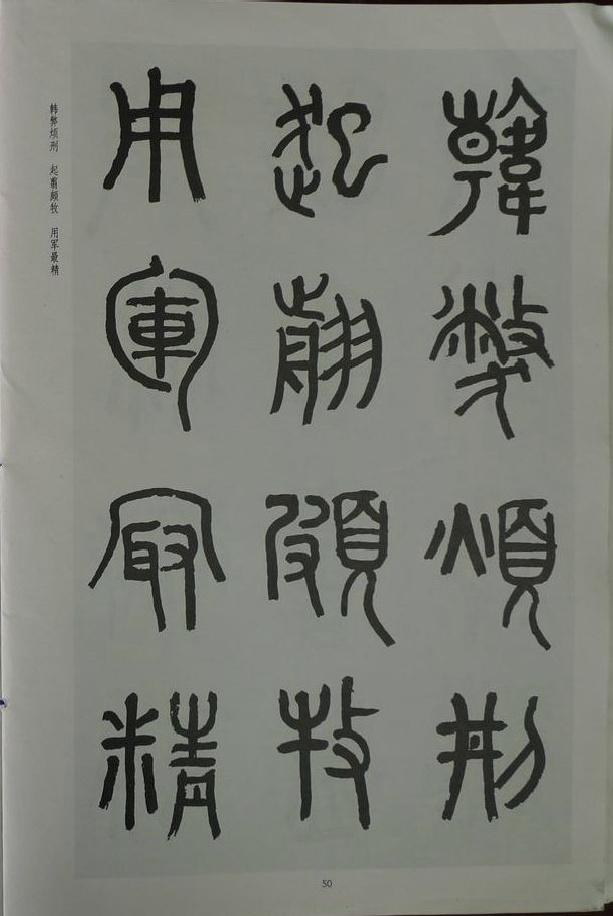 韓弊煩刑
起翦頗牧
用軍最精
韩弊烦刑 起翦颇牧 用军最精
50